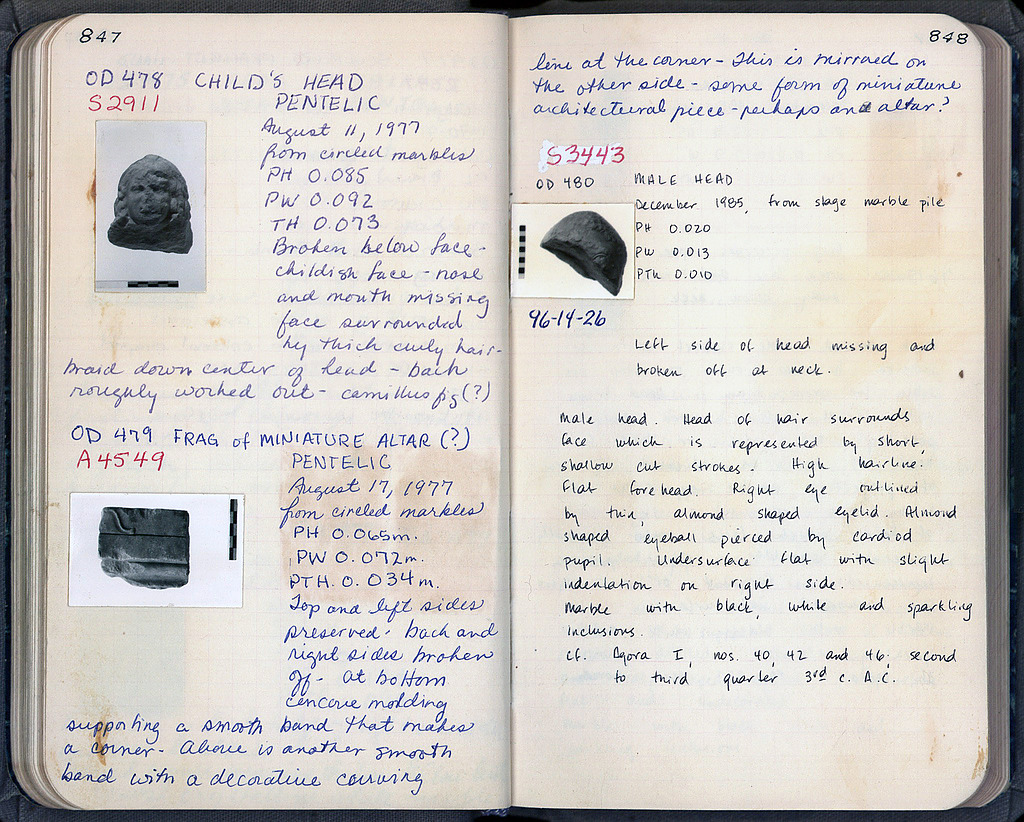 847
OD 478 CHILD'S HEAD
S2911 PENTELIC
August 11, 1977
from circled marbles
PH 0.085
PW 0.092
TH 0.073
Broken below face-
childish face - nose
and mouth missing
face surrounded
by thick curly hair-
braid down center of head - back
roughly worked out - camillus fig (?)
OD 479 FRAG of MINIATURE ALTAR (?)
A4549 PENTELIC
August 17, 1977
from circled marbles
PH 0.065m.
PW 0.072m.
PTH. 0.034m.
Top and left sides
preserved - back and
right sides broken
off - at bottom
concave molding
supporting a smooth band that makes
a corner - Above is another smooth
band with a decorative carving
848
line at the corner - This is mirrored on
the other side - some form of miniature
architectural piece - perhaps an altar?
S3443
OD 480 MALE HEAD
December 1985, from slage marble pile
PH 0.020
PW 0.013
PTh 0.010
96-14-26
Left side of head missing and
broken off at neck.
Male head. Head of hair surrounds
face which is represented by short,
shallow cut strokes. High hairline.
Flat forehead. Right eye outlined
by thin, almond shaped eyelid. Almond
shaped eyeball pierced by cardiod
pupil. Undersurface flat with slight
indentation on right side.
Marble with black, white and sparkling
inclusions.
Cf. Agora I, nos. 40, 42 and 46; second
to third quarter 3rd c. A.C.